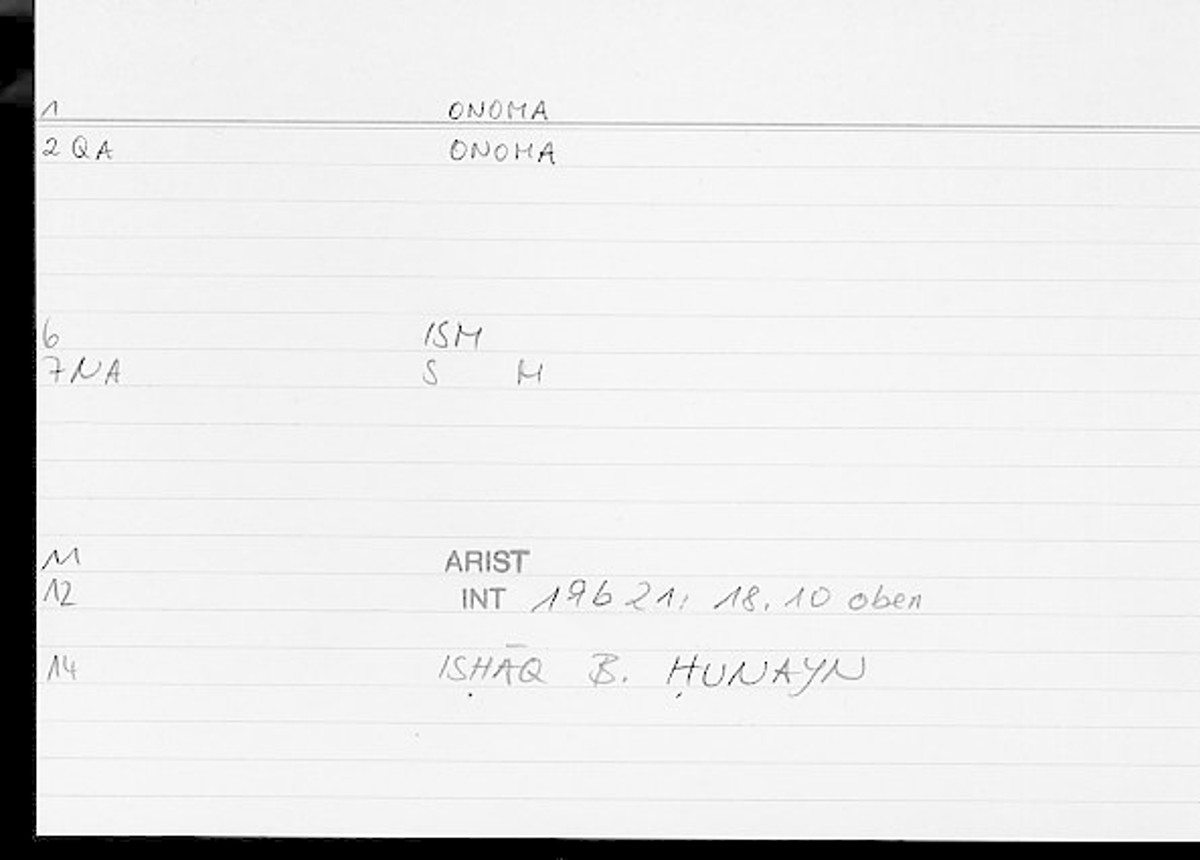 1 ONOMA
2 QA ONOMA
6 ISM
7 NA S M
11 ARIST
12 INT 19b 21; 18.10 oben
14 ISḤĀQ B. ḤUNAYN